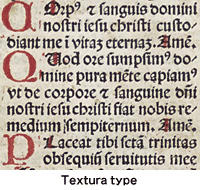 COrpꝰ ⁊ sanguis domini
nostri iesu christi custo-
diant me ī vitaȝ eternaȝ. Amē.
QUod ore sumpsimꝰ do-
mine pura mēte capiamꝰ
vt de corpore ⁊ sanguine dn̄i
nostri iesu christi fiat nobis re-
medium sempiternum. Amē.
PLaceat tibi sct̄a trinitas
obsequiū seruitutis mee
Textura type